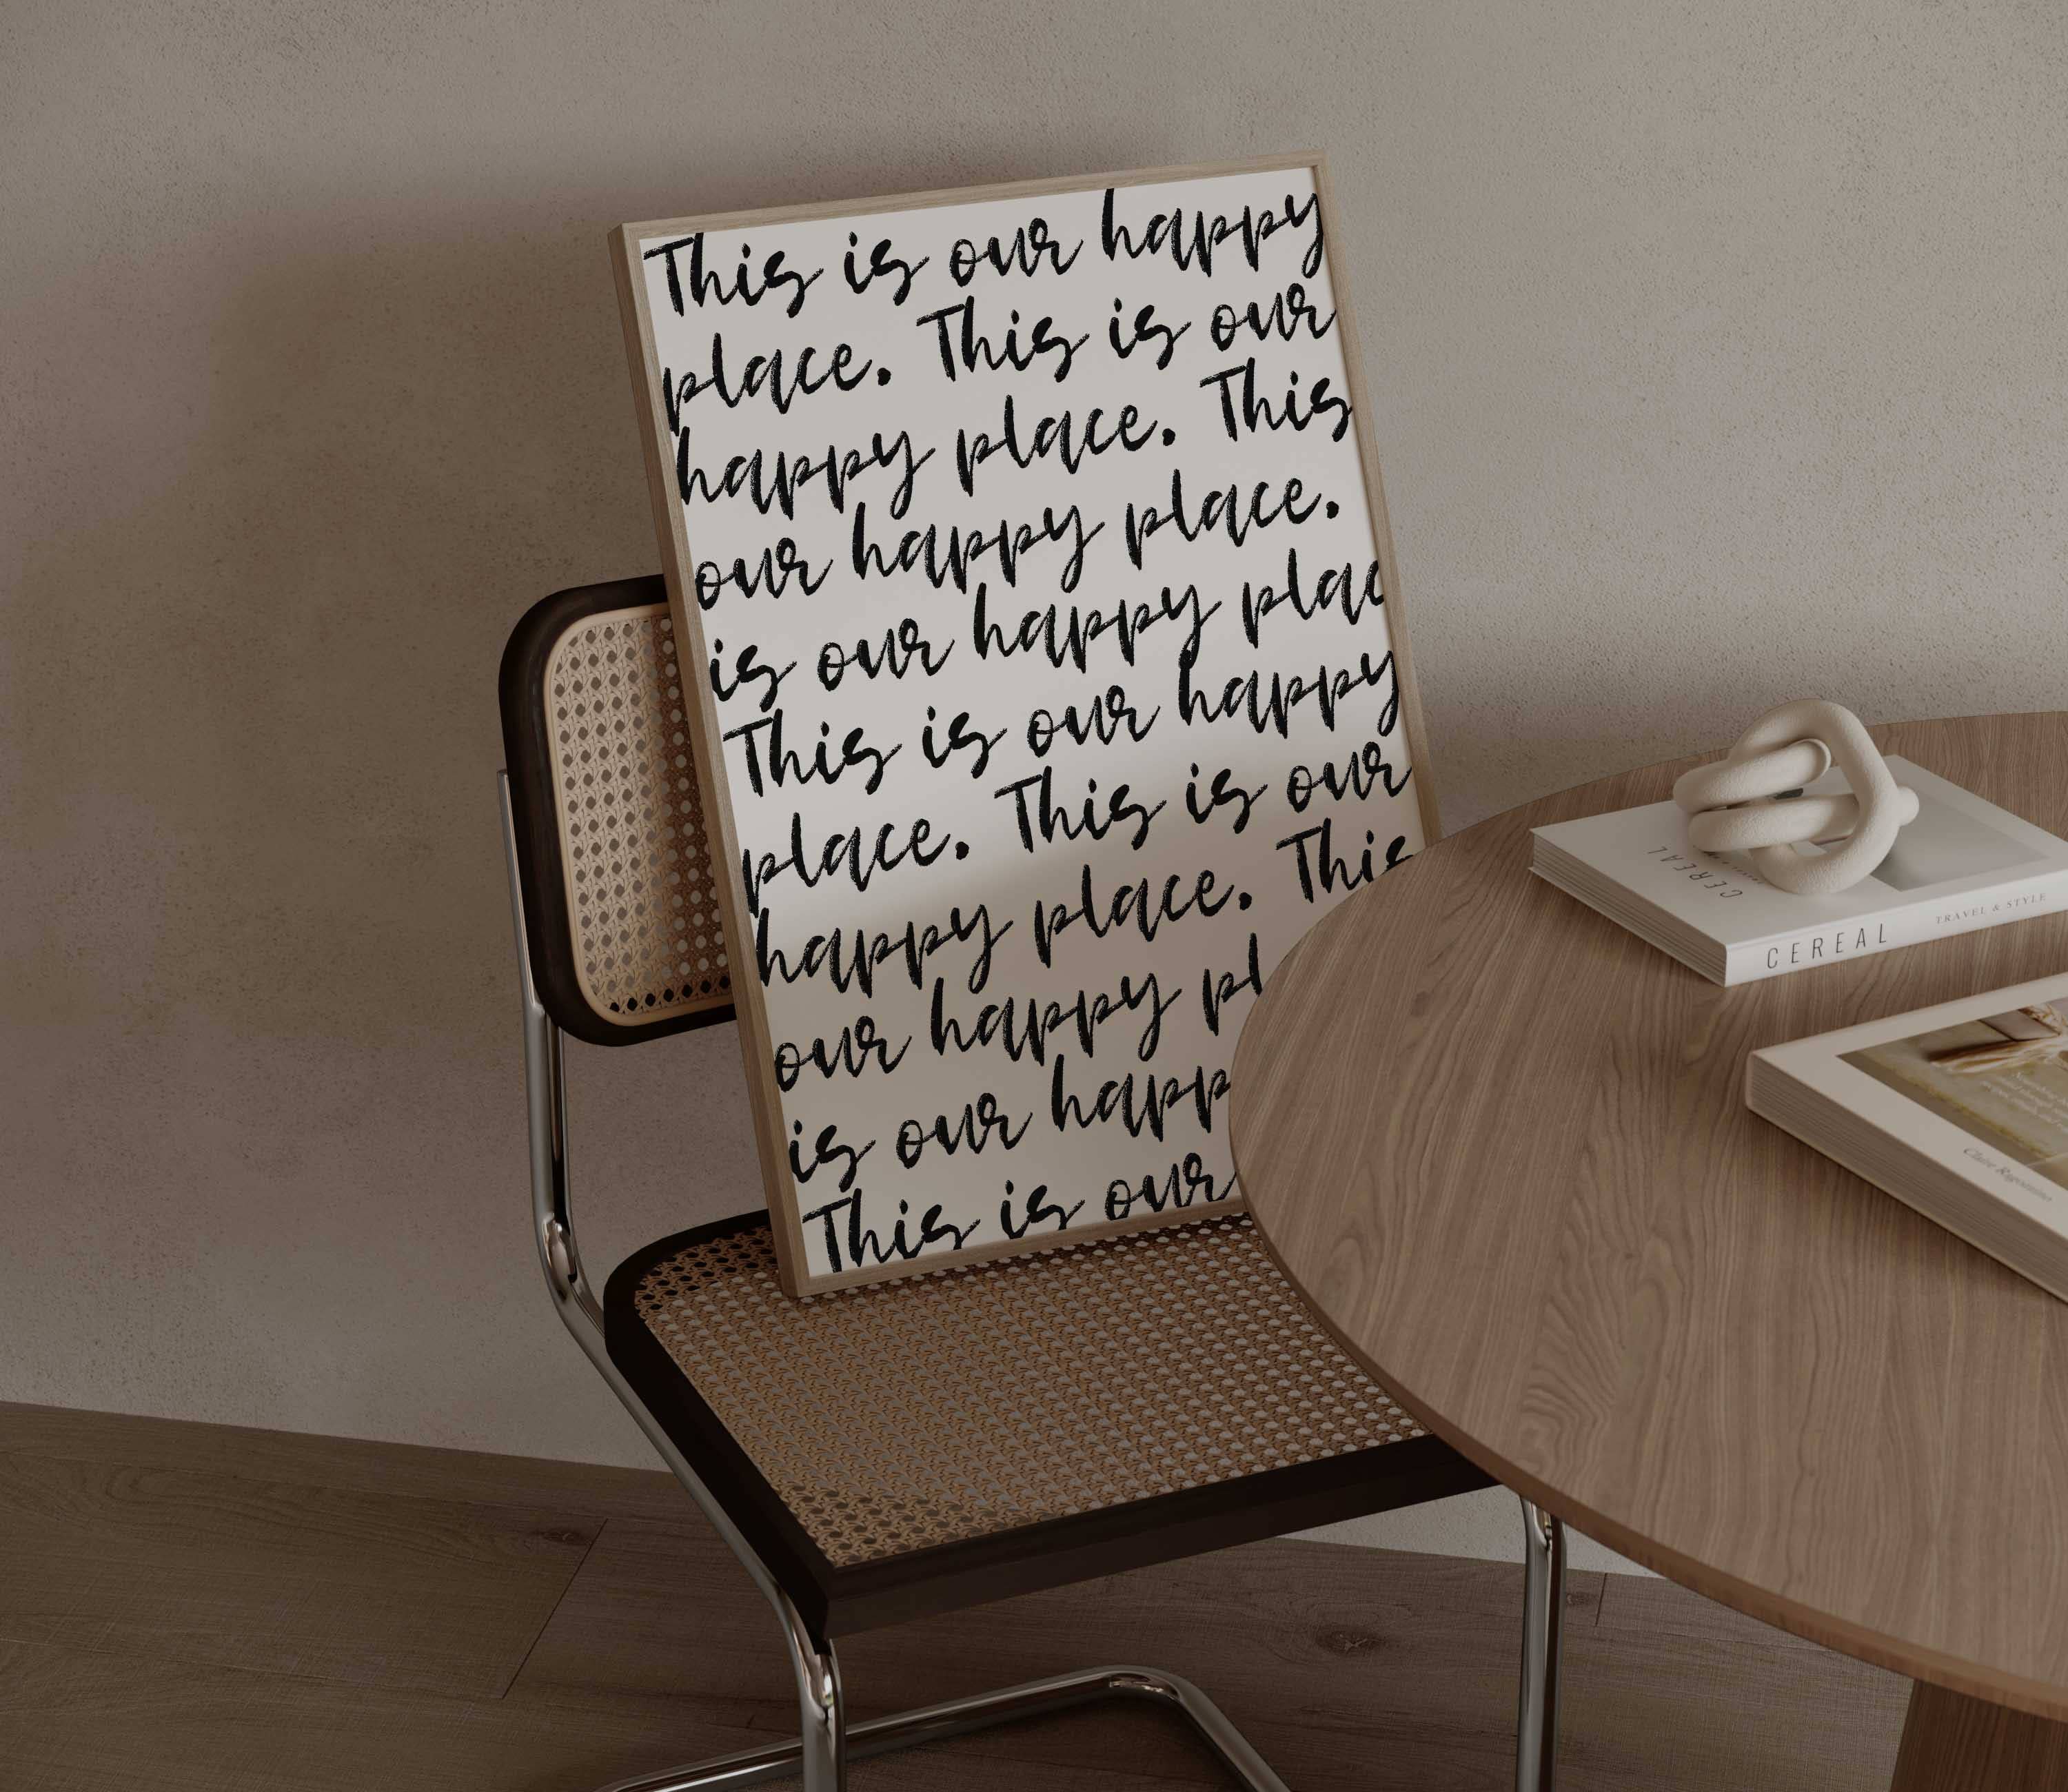 This is our happy
place. This is our
happy place. This
our happy place.
is our happy plac
This is our happy
place. This is our
happy place. This
our happy pl
is our happ
This is our
CEREAL
CEREAL
TRAVEL & STYLE